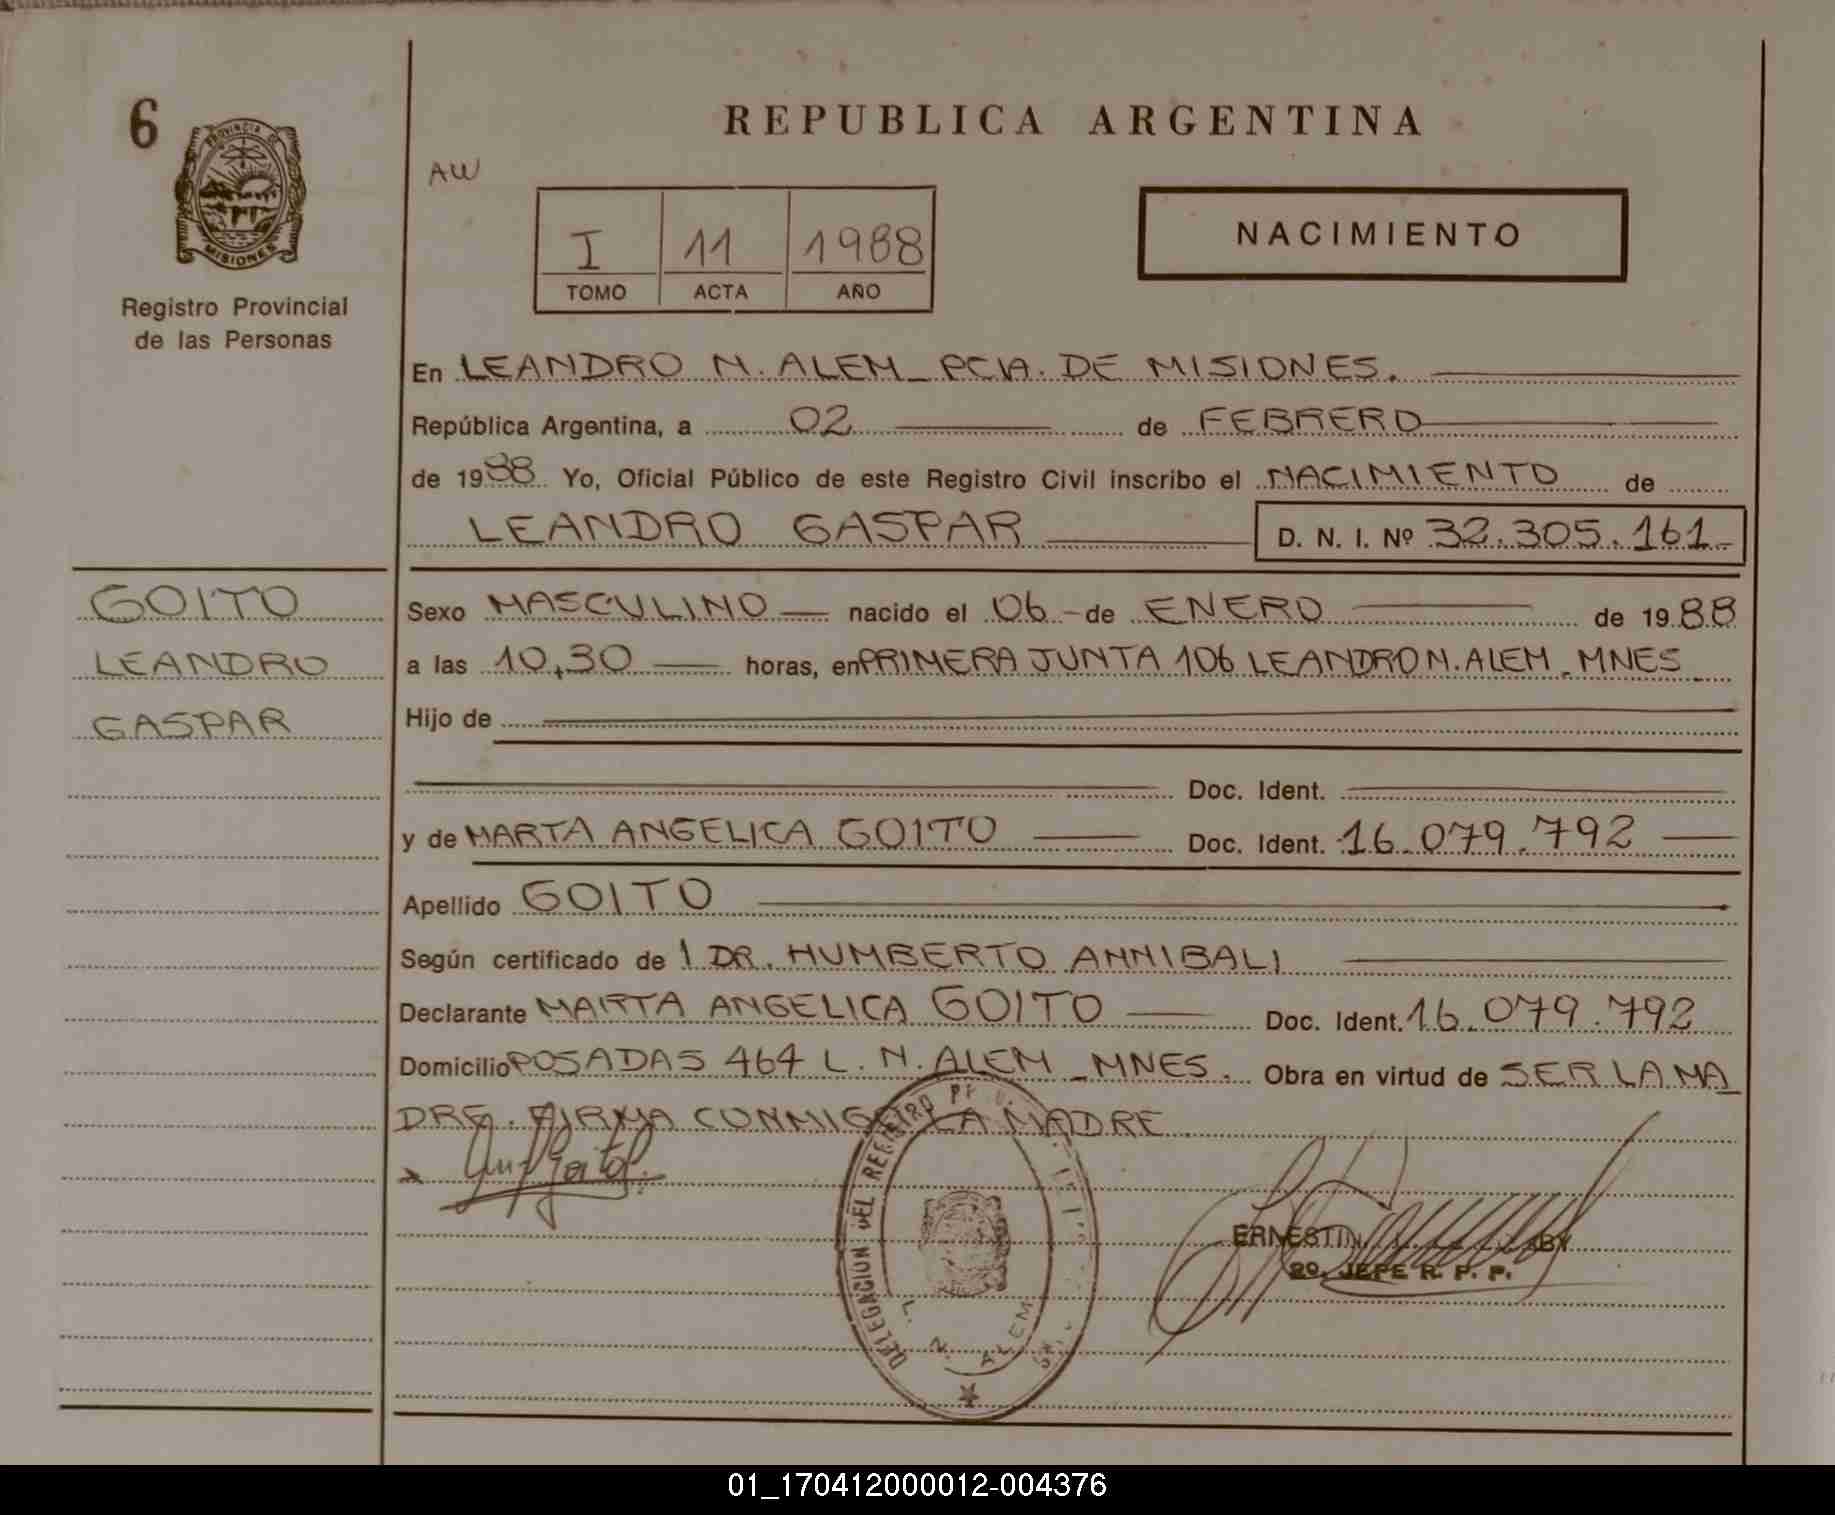 6
PROVINCIA DE
MISIONES
Registro Provincial
de las Personas
REPUBLICA ARGENTINA
AW
I 11 1988
TOMO ACTA AÑO
NACIMIENTO
En LEANDRO N. ALEM PCIA. DE MISIONES.
República Argentina, a 02 de FEBRERO
de 1988 Yo, Oficial Público de este Registro Civil inscribo el NACIMIENTO de
LEANDRO GASPAR D. N. I. Nº 32.305.161
GOITO
LEANDRO
GASPAR
Sexo MASCULINO nacido el 06 de ENERO de 1988
a las 10,30 horas, en PRIMERA JUNTA 106 LEANDRO N. ALEM - MNES
Hijo de
Doc. Ident.
y de MARTA ANGELICA GOITO Doc. Ident. 16.079.792
Apellido GOITO
Según certificado de 1 DR. HUMBERTO ANNIBALI
Declarante MARTA ANGELICA GOITO Doc. Ident. 16.079.792
Domicilio POSADAS 464 L. N. ALEM - MNES. Obra en virtud de SER LA MA
DRE. FIRMA CONMIGO LA MADRE
DELEGACION DEL REGISTRO
L. N. ALEM
ERNESTIN
2º. JEFE R. P. P.
01_170412000012-004376